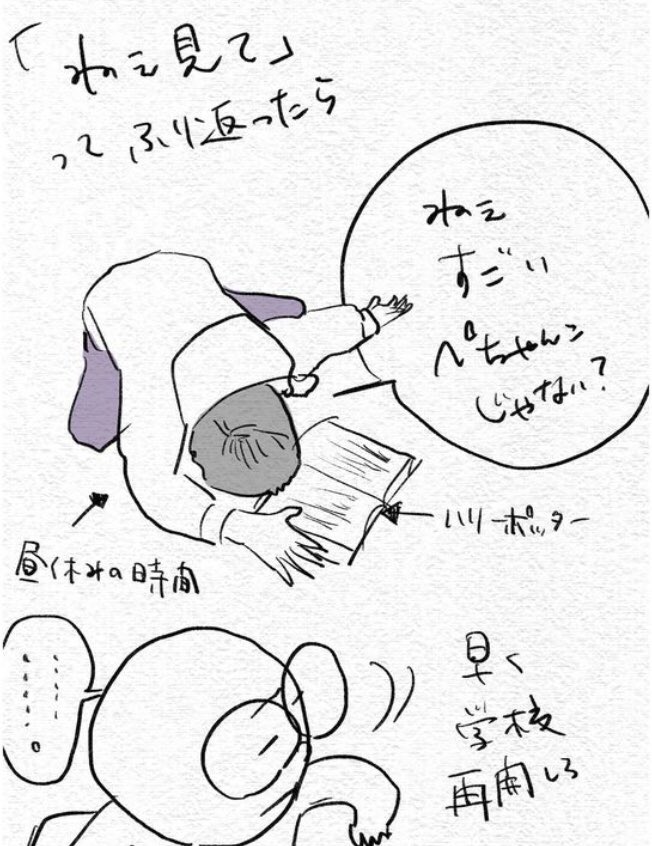 「ねぇ見て」
ってふり返ったら
ねえ
すごい
ぺちゃんこ
じゃない?
ハリーポッター
昼休みの時間
早く
学校
再開しろ